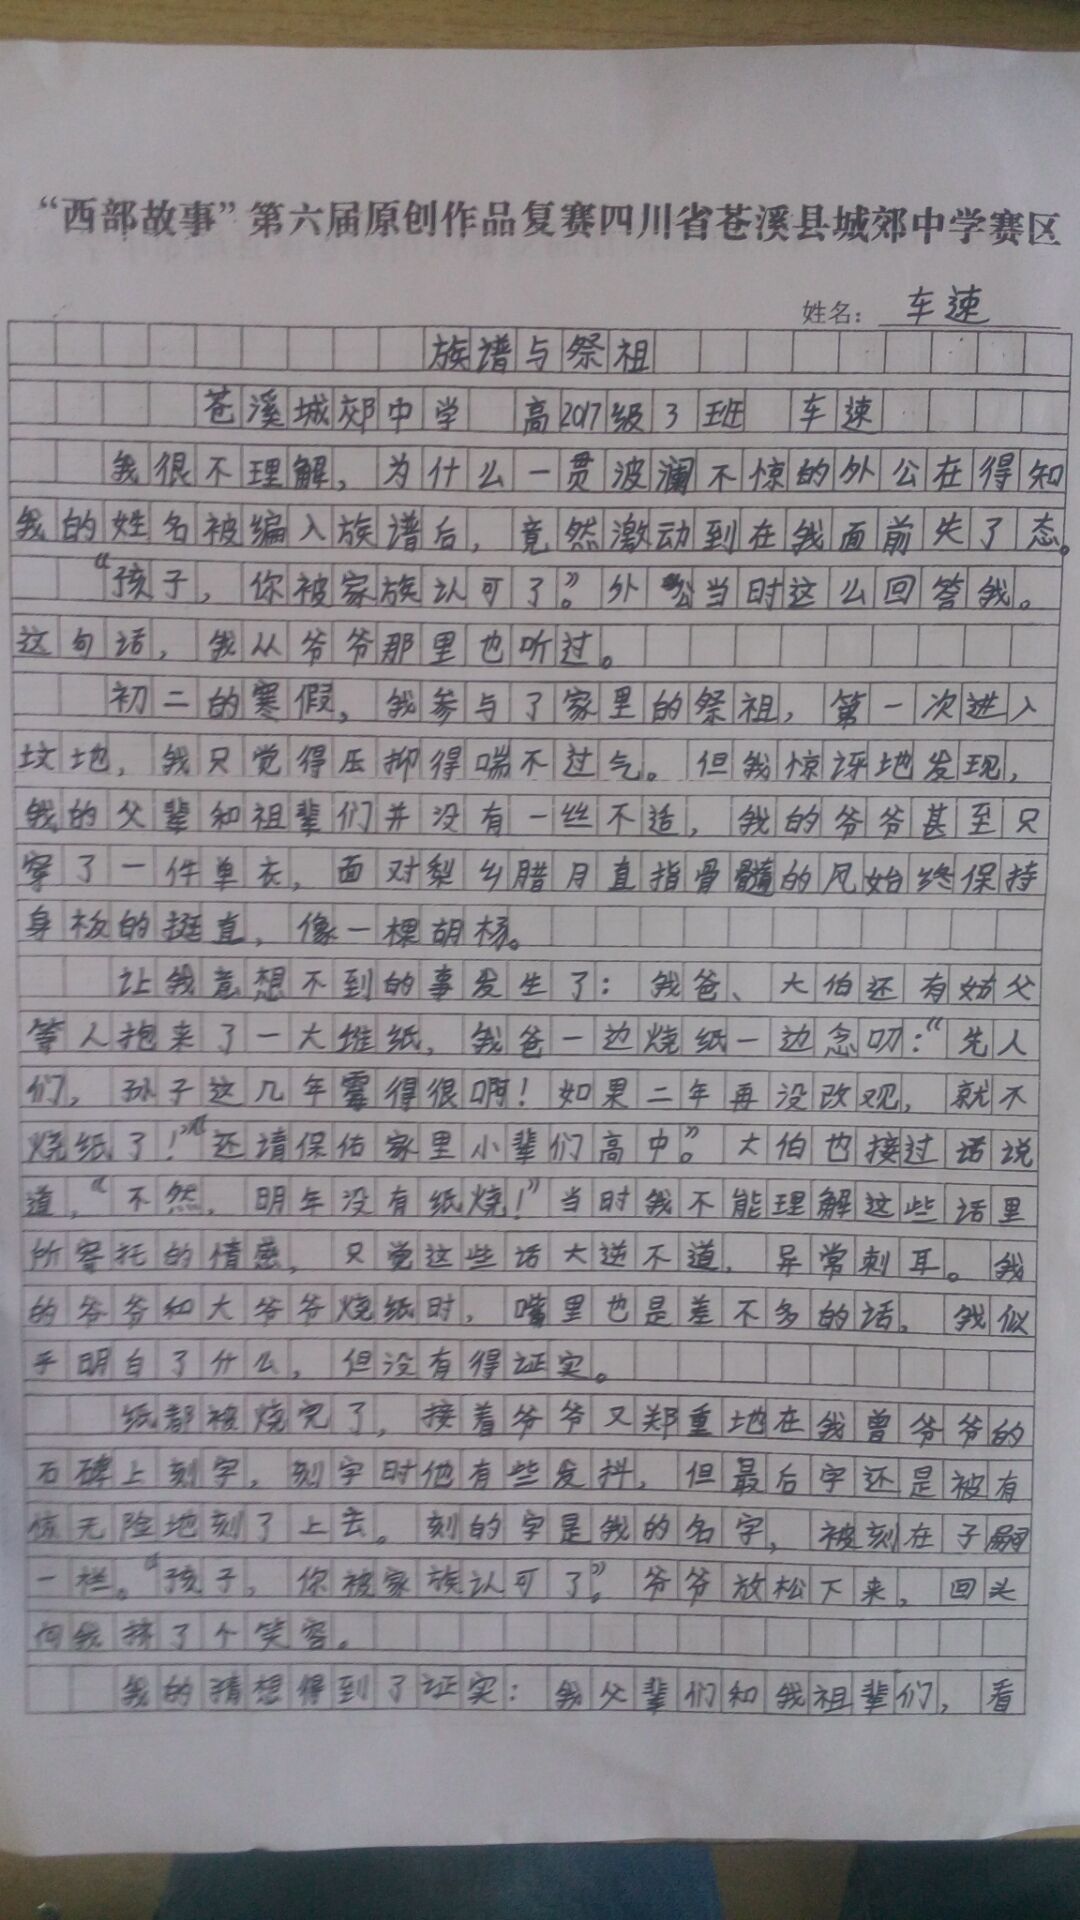 “西部故事”第六届原创作品复赛四川省苍溪县城郊中学赛区
姓名：车速
族谱与祭祖
苍溪城郊中学 高2017级3班 车速
我很不理解，为什么一贯波澜不惊的外公在得知
我的姓名被编入族谱后，竟然激动到在我面前失了态。
“孩子，你被家族认可了”。外公当时这么回答我。
这句话，我从爷爷那里也听过。
初二的寒假，我参与了家里的祭祖，第一次进入
坟地，我只觉得压抑得喘不过气。但我惊讶地发现，
我的父辈和祖辈们并没有一丝不适，我的爷爷甚至只
穿了一件单衣，面对梨乡腊月直指骨髓的风始终保持
身板的挺直，像一棵胡杨。
让我意想不到的事发生了：我爸、大伯还有姑父
等人抱来了一大堆纸，我爸一边烧纸一边念叨：“先人
们，孙子这几年霉得很啊！如果二年再没改观，就不
烧纸了！”“还请保佑家里小辈们高中”。大伯也接过话说
道，“不然，明年没有纸烧！”当时我不能理解这些话里
所寄托的情感，只觉这些话大逆不道，异常刺耳。我
的爷爷和大爷爷烧纸时，嘴里也是差不多的话，我似
乎明白了什么，但没有得证实。
纸都被烧完了，接着爷爷又郑重地在我曾爷爷的
石碑上刻字，刻字时他有些发抖，但最后字还是被有
惊无险地刻了上去。刻的字是我的名字，被刻在子嗣
一栏。“孩子，你被家族认可了”。爷爷放松下来，回头
向我挤了个笑容。
我的猜想得到了证实：我父辈们和我祖辈们，看